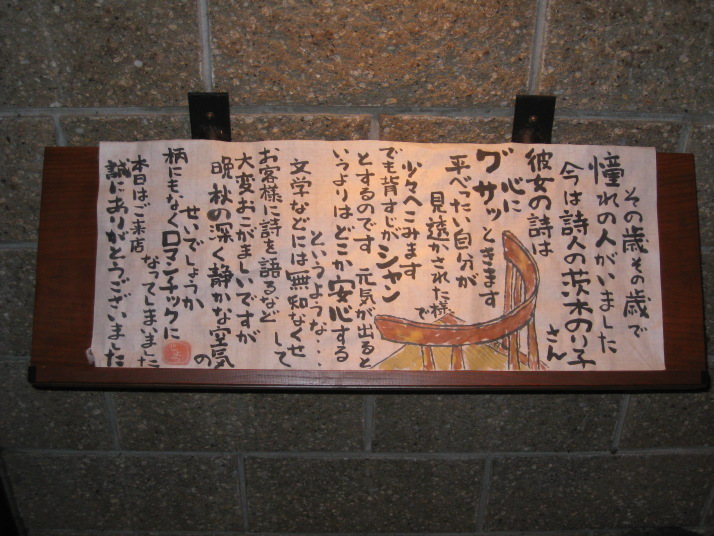 その歳その歳で
憧れの人がいました
今は詩人の茨木のり子
さん
彼女の詩は
心に
グサッときます
平べったい自分が
見透かされた様で
少々へこみます
でも背すじがシャン
とするのです 元気が出ると
いうよりはどこか安心する
というような...
文学などには無知なくせして
お客様に詩を語るなど
大変おこがましいですが
晩秋の深く静かな空気の
せいでしょうか
柄にもなくロマンチックに
なってしまいました
本日はご来店
誠にありがとうございました